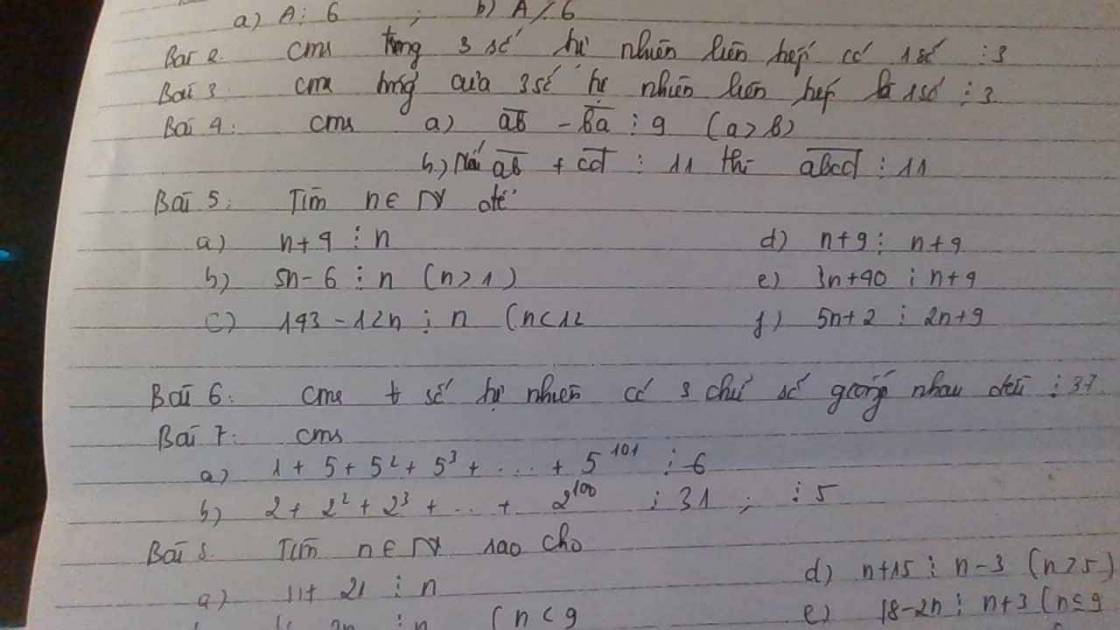 a) A ⋮ 6 ; b) A ⋮̸ 6
Bài 2. cmr trong 3 số tự nhiên liên tiếp có 1 số ⋮ 3
Bài 3. cmr tổng của 3 số tự nhiên liên tiếp là 1 số ⋮ 3
Bài 4: cmr a) ab̅ - ba̅ ⋮ 9 (a > b)
b.) Nếu ab̅ + cd̅ ⋮ 11 thì abcd̅ ⋮ 11
Bài 5: Tìm n ∈ N để
a) n+9 ⋮ n d) n+9 ⋮ n+9
b) 5n-6 ⋮ n (n > 1) e) 3n+90 ⋮ n+9
c) 193-12n ⋮ n (n < 12 f) 5n+2 ⋮ 2n+9
Bài 6: cmr số tự nhiên có 3 chữ số giống nhau đều ⋮ 37
Bài 7: cmr
a) 1 + 5 + 5² + 5³ + ... + 5¹⁰¹ ⋮ 6
b) 2 + 2² + 2³ + ... + 2¹⁰⁰ ⋮ 31 ; ⋮ 5
Bài 8. Tìm n ∈ N sao cho
a) 21 ⋮ n d) n+15 ⋮ n-3 (n > 5)
⋮ n (n < 9 e) 18-2n ⋮ n+3 (n ≤ 9